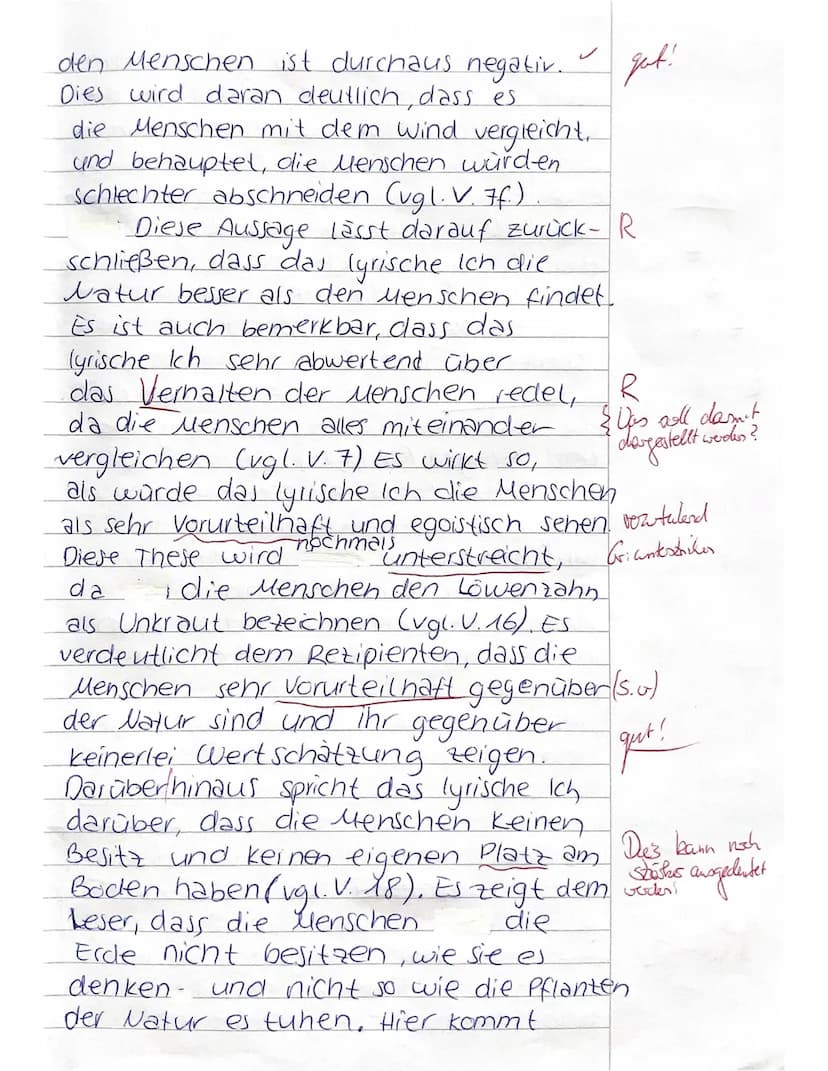 den Menschen ist durchaus negativ. ✓ gut!
Dies wird daran deutlich, dass es
die Menschen mit dem Wind vergleicht,
und behauptet, die Menschen würden
schlechter abschneiden (vgl. V. 7f.).
Diese Aussage lässt darauf zurück- R
schließen, dass das lyrische Ich die
Natur besser als den Menschen findet.
Es ist auch bemerkbar, dass das
lyrische Ich sehr abwertend über
das Verhalten der Menschen redet, R
da die Menschen alles miteinander
Was soll damit
dargestellt werden?
vergleichen (vgl. V. 7) Es wirkt so,
als würde das lyrische Ich die Menschen
als sehr Vorurteilhaft und egoistisch sehen.
Diese These wird nochmals unterstreicht,
da die Menschen den Löwenzahn
als Unkraut bezeichnen (vgl. V. 16). Es
verdeutlicht dem Rezipienten, dass die
Menschen sehr Vorurteilhaft gegenüber (s.o)
der Natur sind und ihr gegenüber
keinerlei Wertschätzung zeigen. gut!
Darüber hinaus spricht das lyrische Ich
darüber, dass die Menschen keinen
Besitz und keinen eigenen Platz am
Dies kann noch
stärker ausgedeutet
werden!
Boden haben (vgl. V. 18). Es zeigt dem
Leser, dass die Menschen die
Erde nicht besitzen, wie sie es
denken - und nicht so wie die Pflanten
der Natur es tuhen. Hier kommt